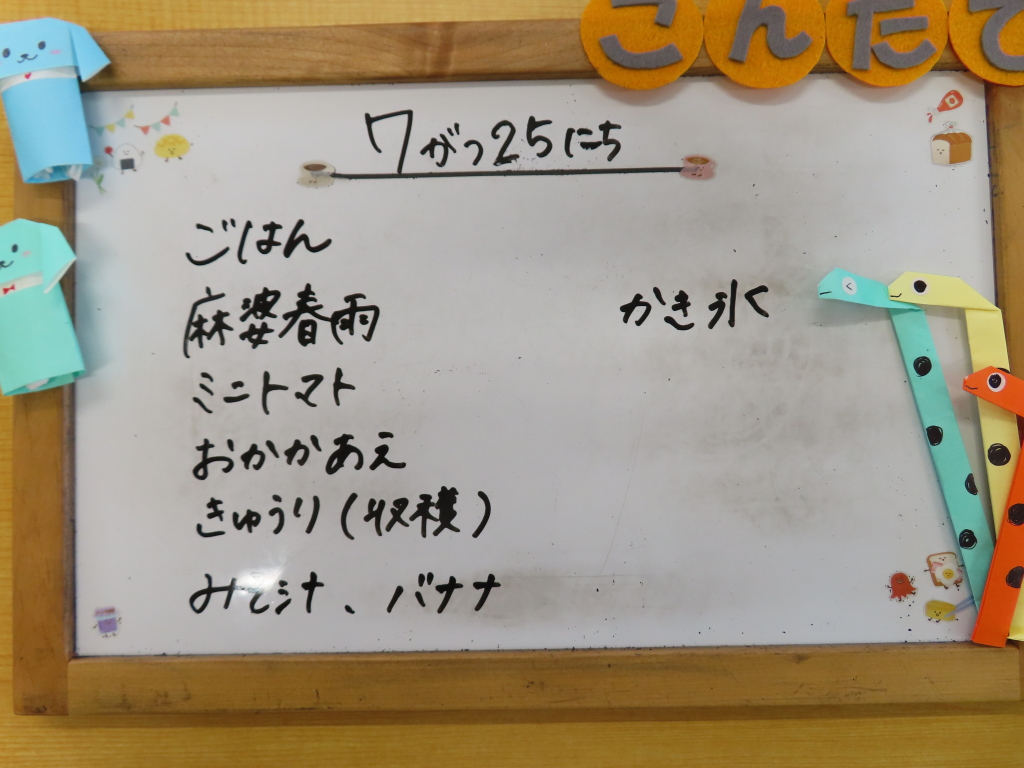 こんだて
7がつ25にち
ごはん
麻婆春雨
ミニトマト
おかかあえ
きゅうり(収穫)
みそ汁、バナナ
かき氷